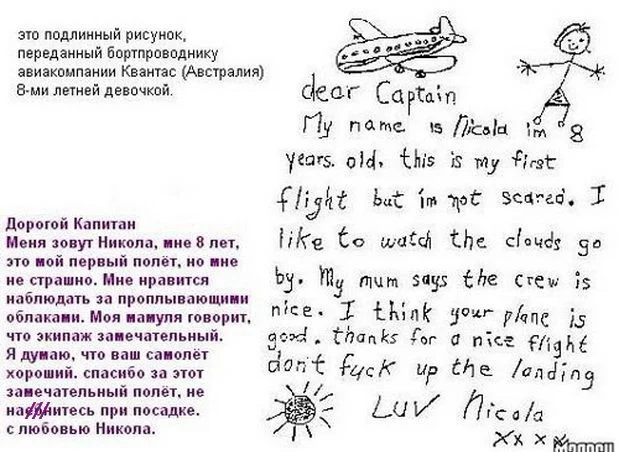 это подлинный рисунок,
переданный бортпроводнику
авиакомпании Квантас (Австралия)
8-ми летней девочкой.
dear Captain
My name is Nicola im 8
years. old, this is my first
flight but im not scared. I
like to watch the clouds go
by. My mum says the crew is
nice. I think your plane is
good. thanks for a nice flight
don't fuck up the landing
LUV Nicola
XX X X
Дорогой Капитан
Меня зовут Никола, мне 8 лет,
это мой первый полёт, но мне
не страшно. Мне нравится
наблюдать за проплывающими
облаками. Моя мамуля говорит,
что экипаж замечательный.
Я думаю, что ваш самолёт
хороший. спасибо за этот
замечательный полёт, не
при посадке.
с любовью Никола.